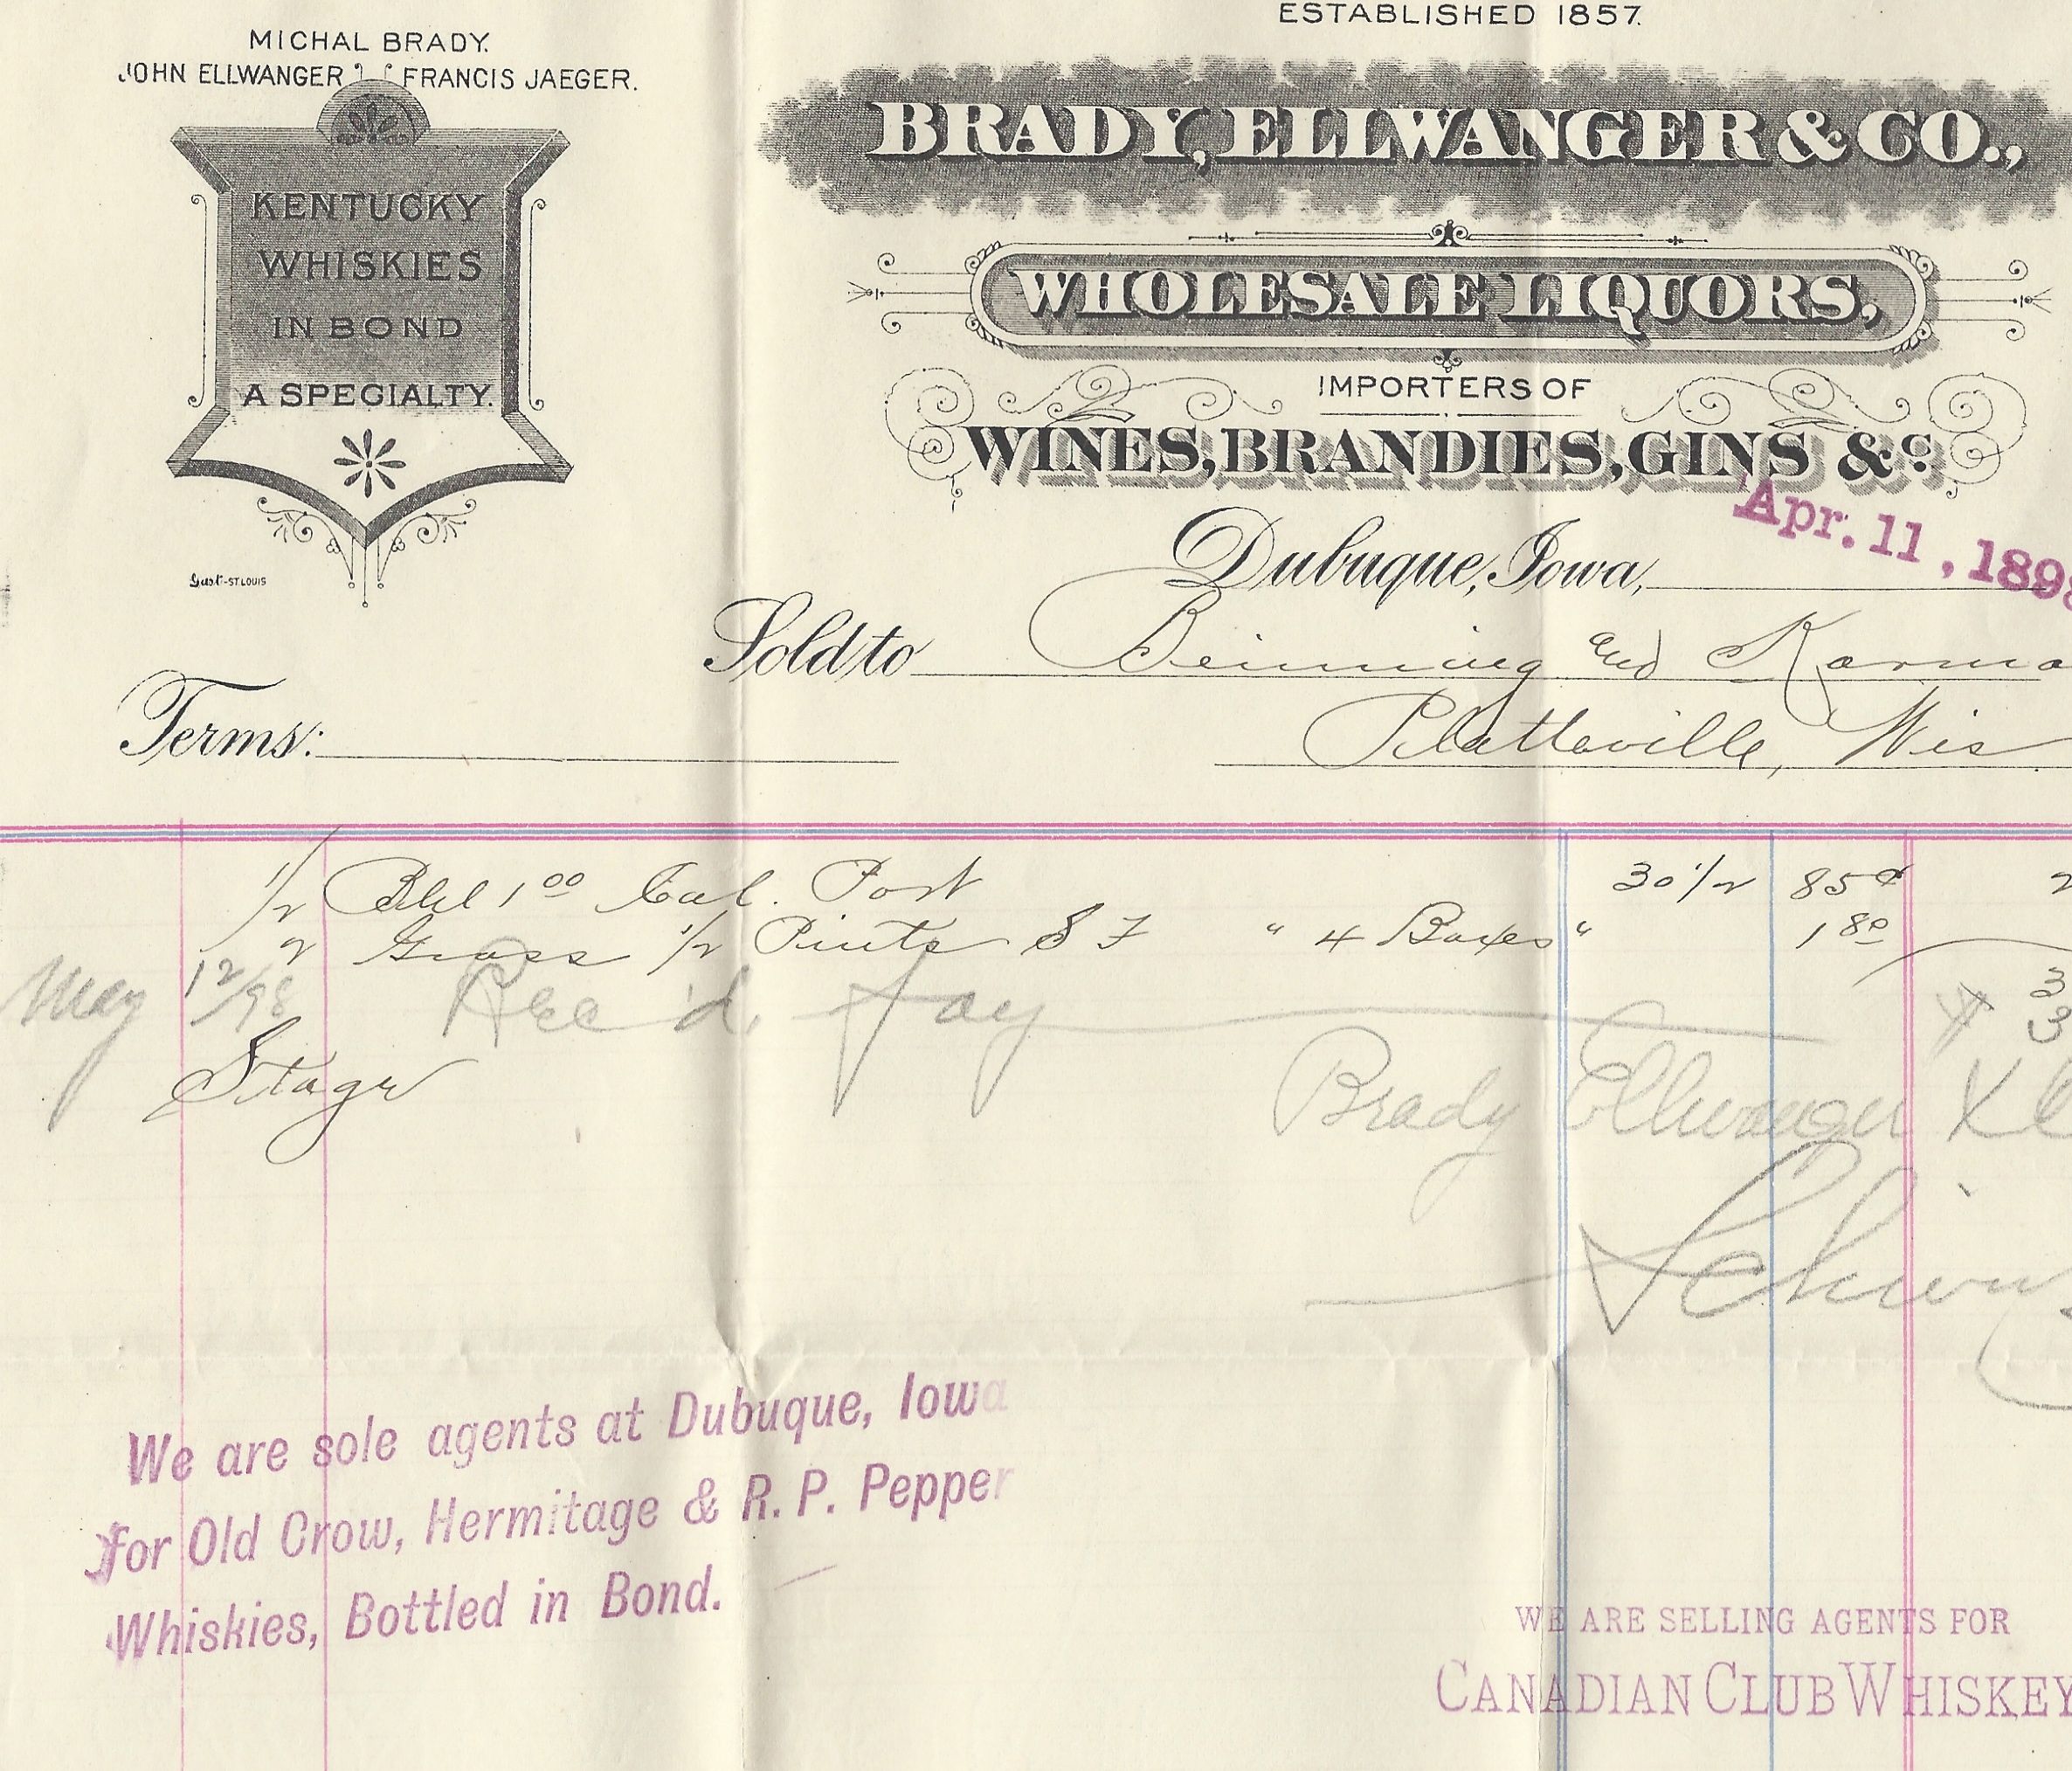 ESTABLISHED 1857.
MICHAL BRADY.
JOHN ELLWANGER FRANCIS JAEGER.
BRADY, ELLWANGER & CO.,
KENTUCKY
WHISKIES
IN BOND
A SPECIALTY.
WHOLESALE LIQUORS,
IMPORTERS OF
WINES, BRANDIES, GINS &c
Gast-ST. LOUIS
Apr. 11, 1898
Dubuque, Iowa,
Sold to Beinning and
Platteville, Wis
Terms:
1/2 Bbl 1 00 Cal. Port 30 1/2 85¢ 2
2 Gross 1/2 Pints S F " 4 Boxes " 1 80
3
May 12/98 Rec'd. Pay 3
Stage
Brady Ellwanger & C
We are sole agents at Dubuque, Iowa
for Old Crow, Hermitage & R. P. Pepper
Whiskies, Bottled in Bond.
WE ARE SELLING AGENTS FOR
CANADIAN CLUB WHISKEY